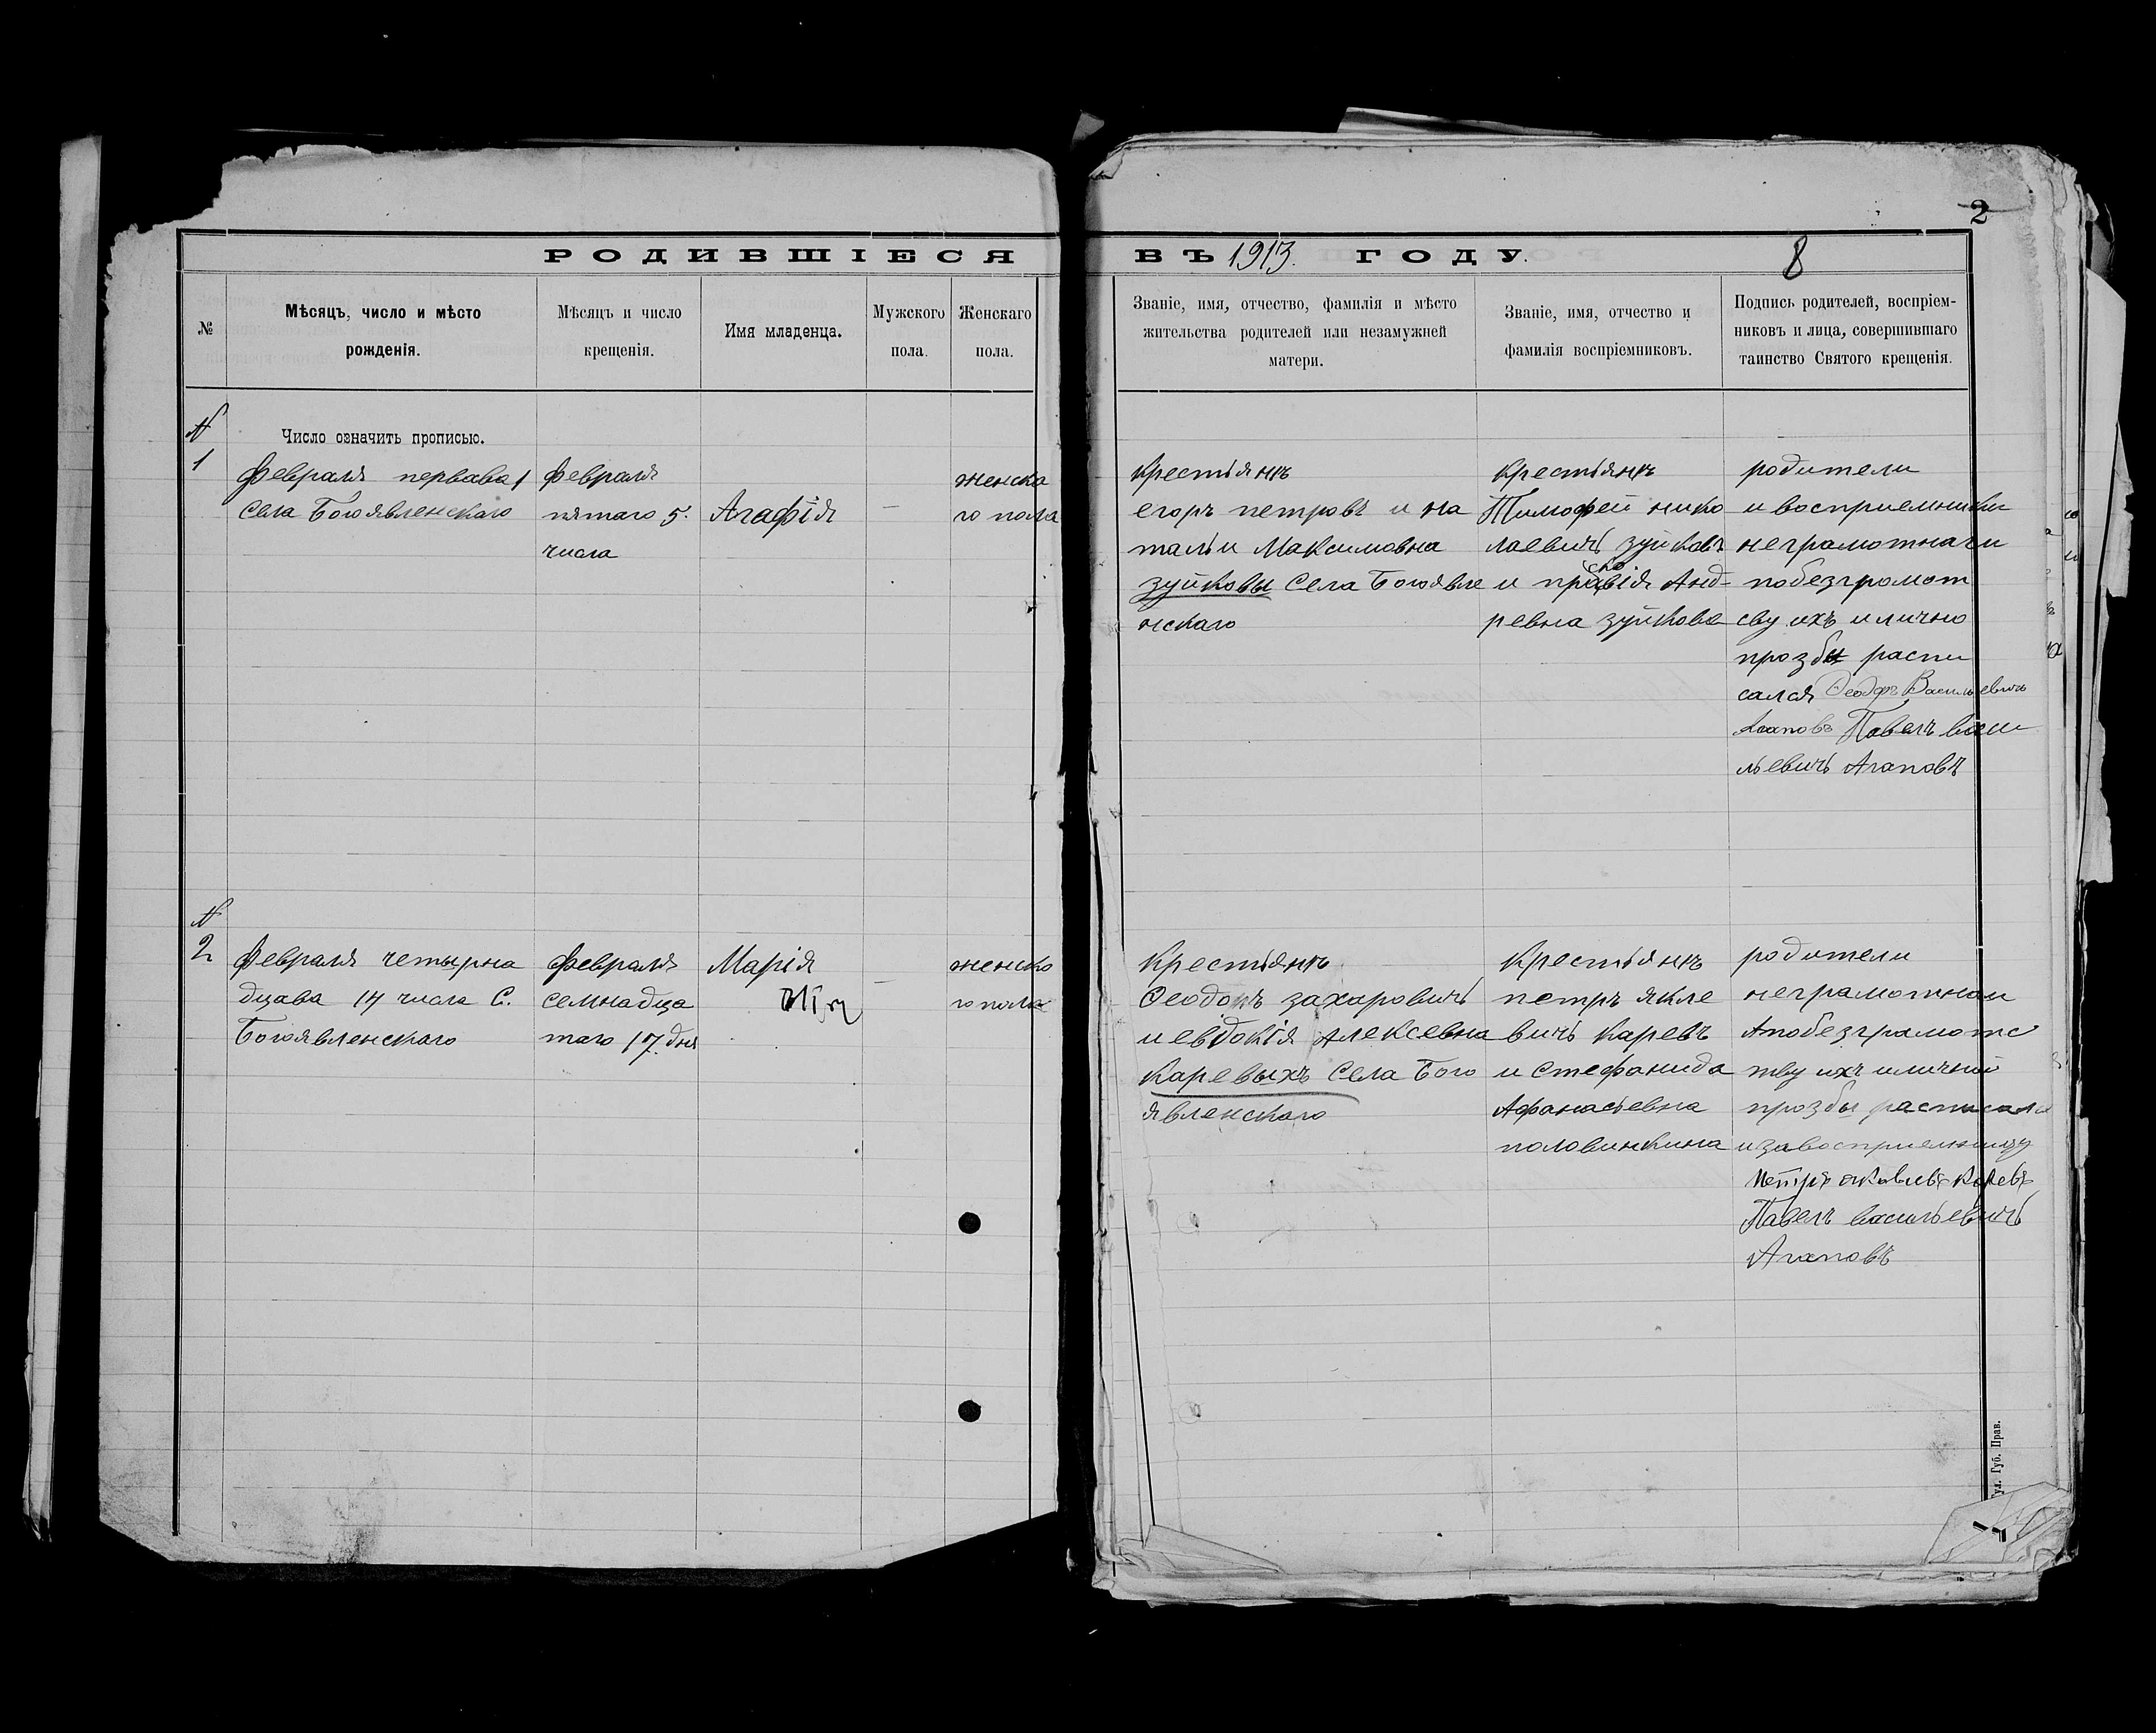 2
РОДИВШІЕСЯ ВЪ 1913. ГОДУ.
8
№
Мѣсяцъ, число и мѣсто
рожденія.
Мѣсяцъ и число
крещенія.
Имя младенца.
Мужского
пола.
Женскаго
пола.
Званіе, имя, отчество, фамилія и мѣсто
жительства родителей или незамужней
матери.
Званіе, имя, отчество и
фамилія воспріемниковъ.
Подпись родителей, воспріем-
никовъ и лица, совершившаго
таинство Святого крещенія.
N
1
Число означить прописью.
Февраля первава 1
Села Богоявленскаго
Февраля
пятаго 5.
числа
Агафія
—
женска
го пола
Крестіянъ
егоръ петровъ и на
тальи Максимовна
зуйковы Села Богоявле
нскаго
Крестіянъ
Тимофей нико
лаевичь зуйковъ
и Анд-
ревна зуйкова
родители
и восприемники
неграмотнаи
побезграмот
сву ихъ и лично
прозбы распи
салса Ѳеодоръ Васильевичъ
Агаповъ Павелъ васи
льевичь Агаповъ
N
2
Февраля четырна
дцава 14 числа С.
Богоявленскаго
Февраля
семнадца
таго 17. дня
Марія
—
женско
го пола
Крестьянъ
захаровичь
и евдокія Алексевна
Каревыхъ Села Бого
явленскаго
Крестіянъ
петръ якле
вичь Каревъ
и Стефанида
Афанасьевна
половинкина
родители
неграмотнаи
Апобезграмотс
тву ихъ иличной
прозбы расписалса
изавосприемницу
Петръ Каревъ
Павелъ васильевичь
Агаповъ
Тул. Губ. Прав.